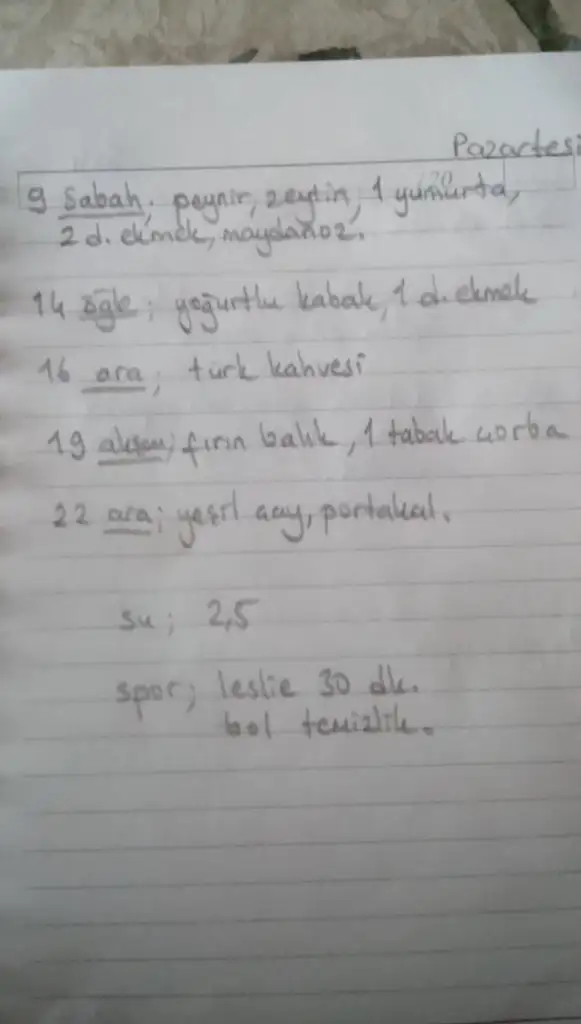 Pazartesi
9 Sabah; peynir, zeytin, 1 yumurta,
2 d. ekmek, maydanoz.
14 öğle; yoğurtlu kabak, 1 d. ekmek
16 ara; türk kahvesi
19 akşam; fırın balık, 1 tabak çorba
22 ara; yeşil çay, portakal.
su; 2,5
spor; leslie 30 dk.
bol temizlik.